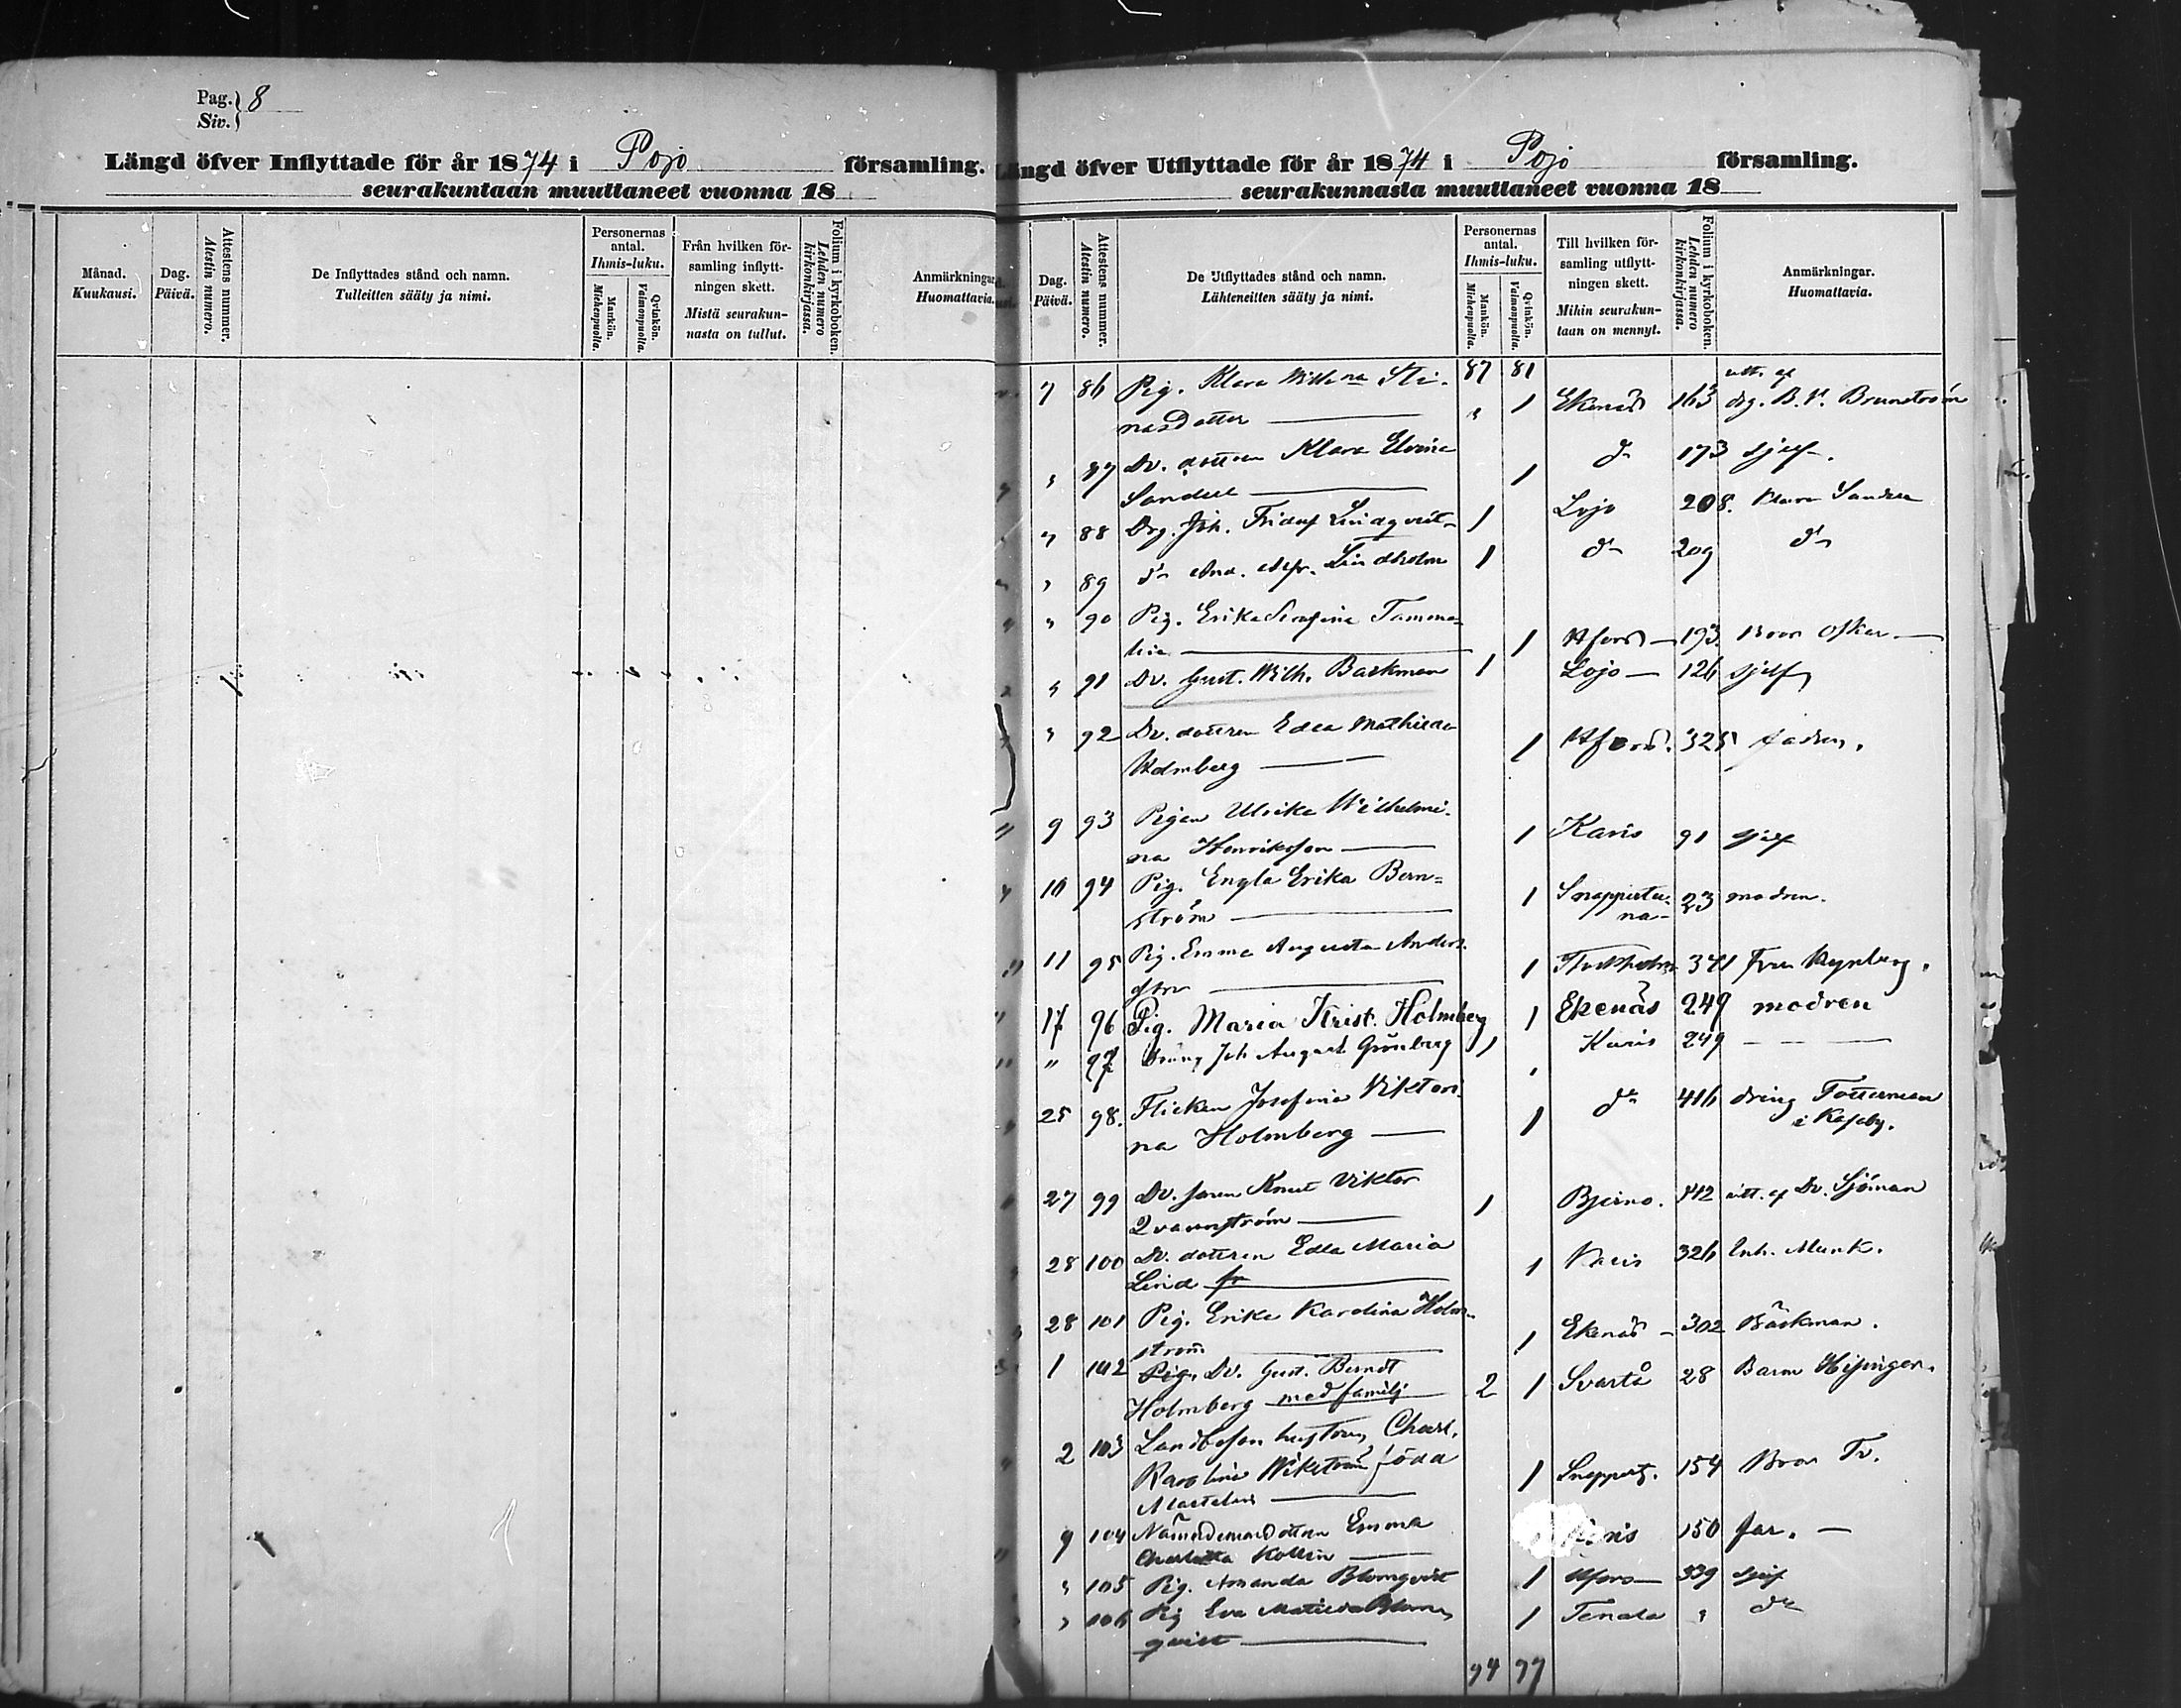 Pag. 8
Siv.
Längd öfver Inflyttade för år 1874 i Pojo församling.
seurakuntaan muuttaneet vuonna 18
Månad. Kuukausi.
Dag. Päivä.
Attestens nummer. Atestin numero.
De Inflyttades stånd och namn.
Tulleitten sääty ja nimi.
Personernas antal.
Ihmis-luku.
Mankön. Miehenpuolia.
Qvinkön. Vaimonpuolia.
Från hvilken för-
samling inflytt-
ningen skett.
Mistä seurakun-
nasta on tullut.
Folium i kyrkoboken.
Lehden numero kirkonkirjassa.
Anmärkningar
Huomattavia.
Längd öfver Utflyttade för år 1874 i Pojo församling.
seurakunnasta muuttaneet vuonna 18
Dag. Päivä.
Attestens nummer. Atestin numero.
De Utflyttades stånd och namn.
Lähteneitten sääty ja nimi.
Personernas antal.
Ihmis-luku.
Mankön. Miehenpuolia.
Qvinkön. Vaimonpuolia.
Till hvilken för-
samling utflytt-
ningen skett.
Mihin seurakun-
taan on mennyt.
Folium i kyrkoboken.
Lehden numero kirkonkirjassa.
Anmärkningar.
Huomattavia.
87 81
7 86 Pig. Klara Wilhna Sti- utt. af
nasdotter " 1 Ekenäs 163 drg. B. V. Brunström
" 87 Dv. dottren Klara Elvina 1 do 173 sjelf.
Sandell
" 88 Drg. Joh. Fridolf Lindqvist 1 Lojo 208. Klara Sandell
" 89 do And. Alfr. Lindholm 1 do 209 do
" 90 Pig. Erika Serafina Tamme-
lin 1 Hfors 193. Oskar
" 91 Dv. Gust. Wilh. Backman 1 Lojo 126 sjelf
" 92 Dv. dottren Edla Mathilda
Holmberg 1 Hfors. 325 fadren.
" 9 93 Pigan Ulrika Wilhelmi-
na Henriksson 1 Karis 91 sjelf
10 94 Pig. Engla Erika Bern=
ström 1 Snappertu-
na 23 modren.
" 11 95 Pig. Emma Augusta Anders-
1 Stockholm 341 Fru
" 17 96 Pig. Maria Krist. Holmberg 1 Ekenäs 249 modren
" " 97 Dräng Joh August Grönberg 1 Karis 249
25 98. Flickan Josefina Viktori-
na Holmberg 1 do 416 dräng Totterman
i
27 99 Dv. sonen Knut Viktor
Qvarnström 1 Bjerno. 412 utt. af Dv. Sjöman
28 100 Dv. dottren Edla Maria
Lind 1 Karis 326 Enh. Munk.
28 101 Pig. Erika Karolina Holm-
ström 1 Ekenäs 302 Bäckman.
1 102 Pig. Dv. Gust. Berndt
Holmberg med familj 2 1 Svartå 28 Baron Hisinger.
2 103 Landbofon hustrun Charl.
Karolina Wikström föda
1 Snappert. 154 Bror
9 104 Nämndemansdottren Emma
Charlotta Kollin 150 far.
" 105 Pig. Amanda Blomqvist 1 Hfors 339 sjelf
" 106 Pig Eva Matilda Blom-
qvist 1 Tenala " do
94 97